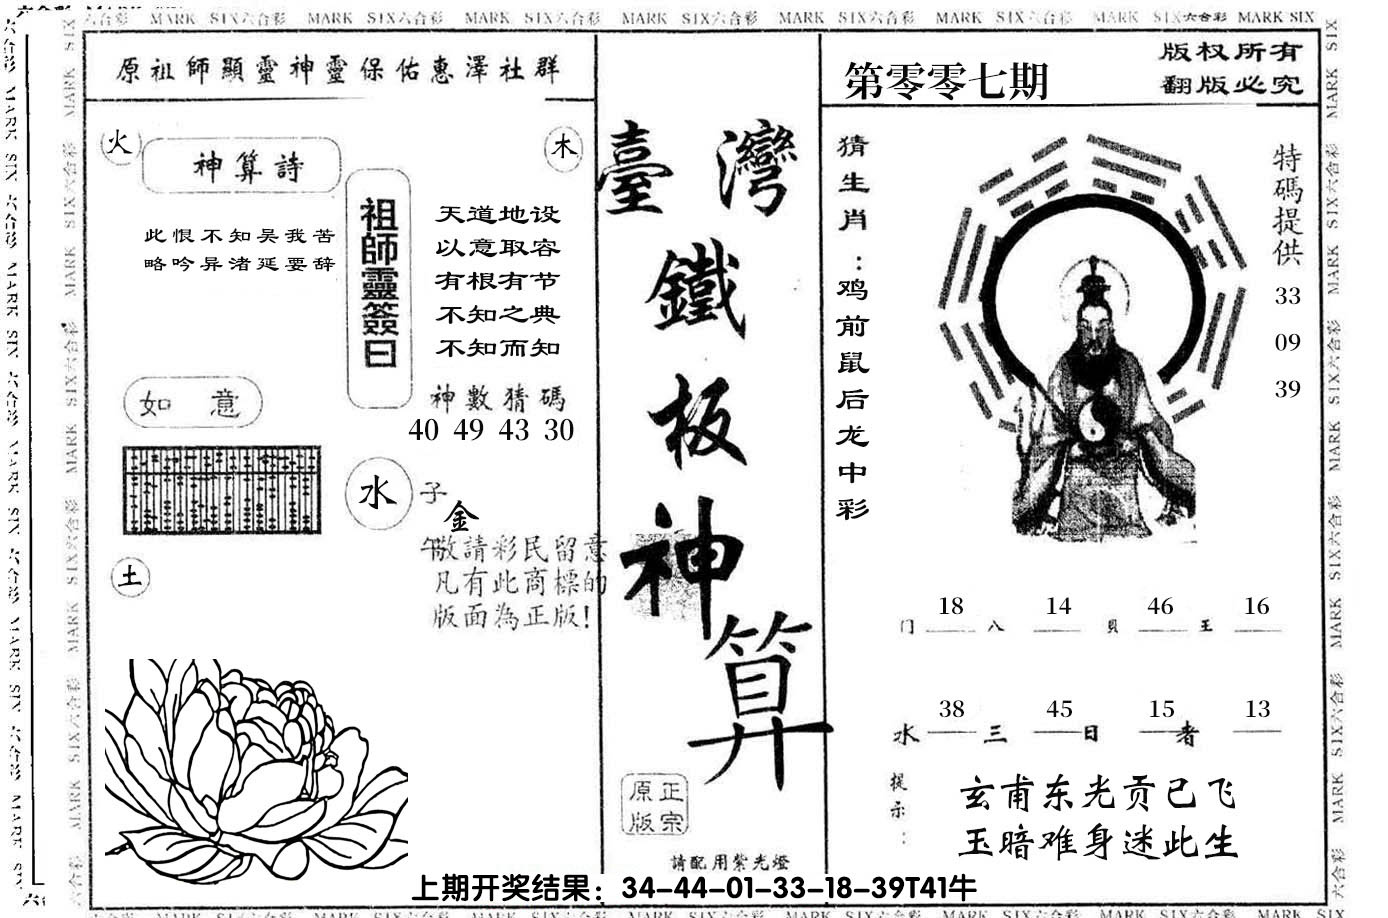 MARK SIX六合彩 MARK SIX六合彩 MARK SIX六合彩 MARK SIX六合彩 MARK SIX六合彩 MARK SIX六合彩 MARK SIX六合彩 MARK SIX
原祖師顯靈神靈保佑惠澤社群
火
木
神算詩
此恨不知吴我苦
略吟异渚延要辞
祖師靈簽曰
天道地设
以意取容
有根有节
不知之典
不知而知
神數猜碼
40 49 43 30
如意
水
子
金
午
敬請彩民留意
凡有此商標的
版面為正版!
土
臺灣
鐵
板
神
算
正宗
原版
請配用紫光燈
第零零七期
版权所有
翻版必究
猜生肖:鸡前鼠后龙中彩
特碼提供
33
09
39
18 14 46 16
门 八 贝 王
38 45 15 13
水 三 日 者
提示:
玄甫东光贡已飞
玉暗难身迷此生
上期开奖结果:34-44-01-33-18-39T41牛